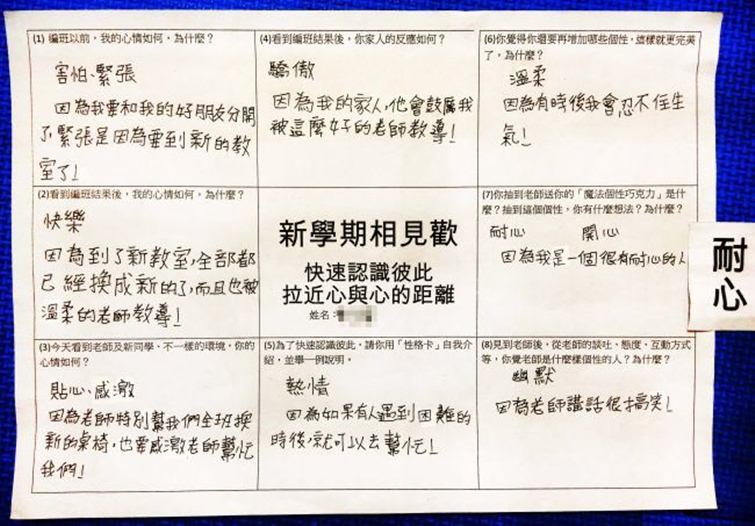 (1) 編班以前，我的心情如何，為什麼？
害怕、緊張
因為我要和我的好朋友分開
了，緊張是因為要到新的教
室了！
(2)看到編班結果後，我的心情如何，為什麼？
快樂
因為到了新教室，全部都
已經換成新的了，而且也被
溫柔的老師教導！
(3)今天看到老師及新同學、不一樣的環境，你的
心情如何？
貼心、感激
因為老師特別幫我們全班換
新的桌椅，也要感激老師幫忙
我們！
(4)看到編班結果後，你家人的反應如何？
驕傲
因為我的家人，他會鼓厲我
被這麼好的老師教導！
新學期相見歡
快速認識彼此
拉近心與心的距離
姓名：
(5)為了快速認識彼此，請你用「性格卡」自我介
紹，並舉一例說明。
熱情
因為如果有人遇到困難的
時後，就可以去幫忙！
(6)你覺得你還要再增加哪些個性，這樣就更完美
了，為什麼？
溫柔
因為有時後我會忍不住生
氣！
(7)你抽到老師送你的「魔法個性巧克力」是什
麼？抽到這個個性，你有什麼想法？為什麼？
耐心 開心
因為我是一個很有耐心的人
耐心
(8)見到老師後，從老師的談吐、態度、互動方式
等，你覺老師是什麼樣個性的人？為什麼？
幽默
因為老師講話很搞笑！